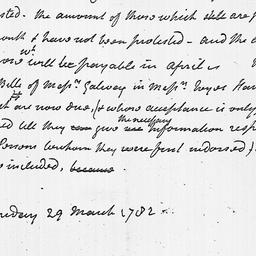 sted. the amount of those which still are p
onth & have not been protested - and the a
wh.
ose will be payable in April is
Bills of Messrs Galway in Messrs
wh are now due, (& whose acceptance is only
the necessary
ed till they can give information resp
Persons by whom they were first endorsed)
s included, because
nday 29 March 1782